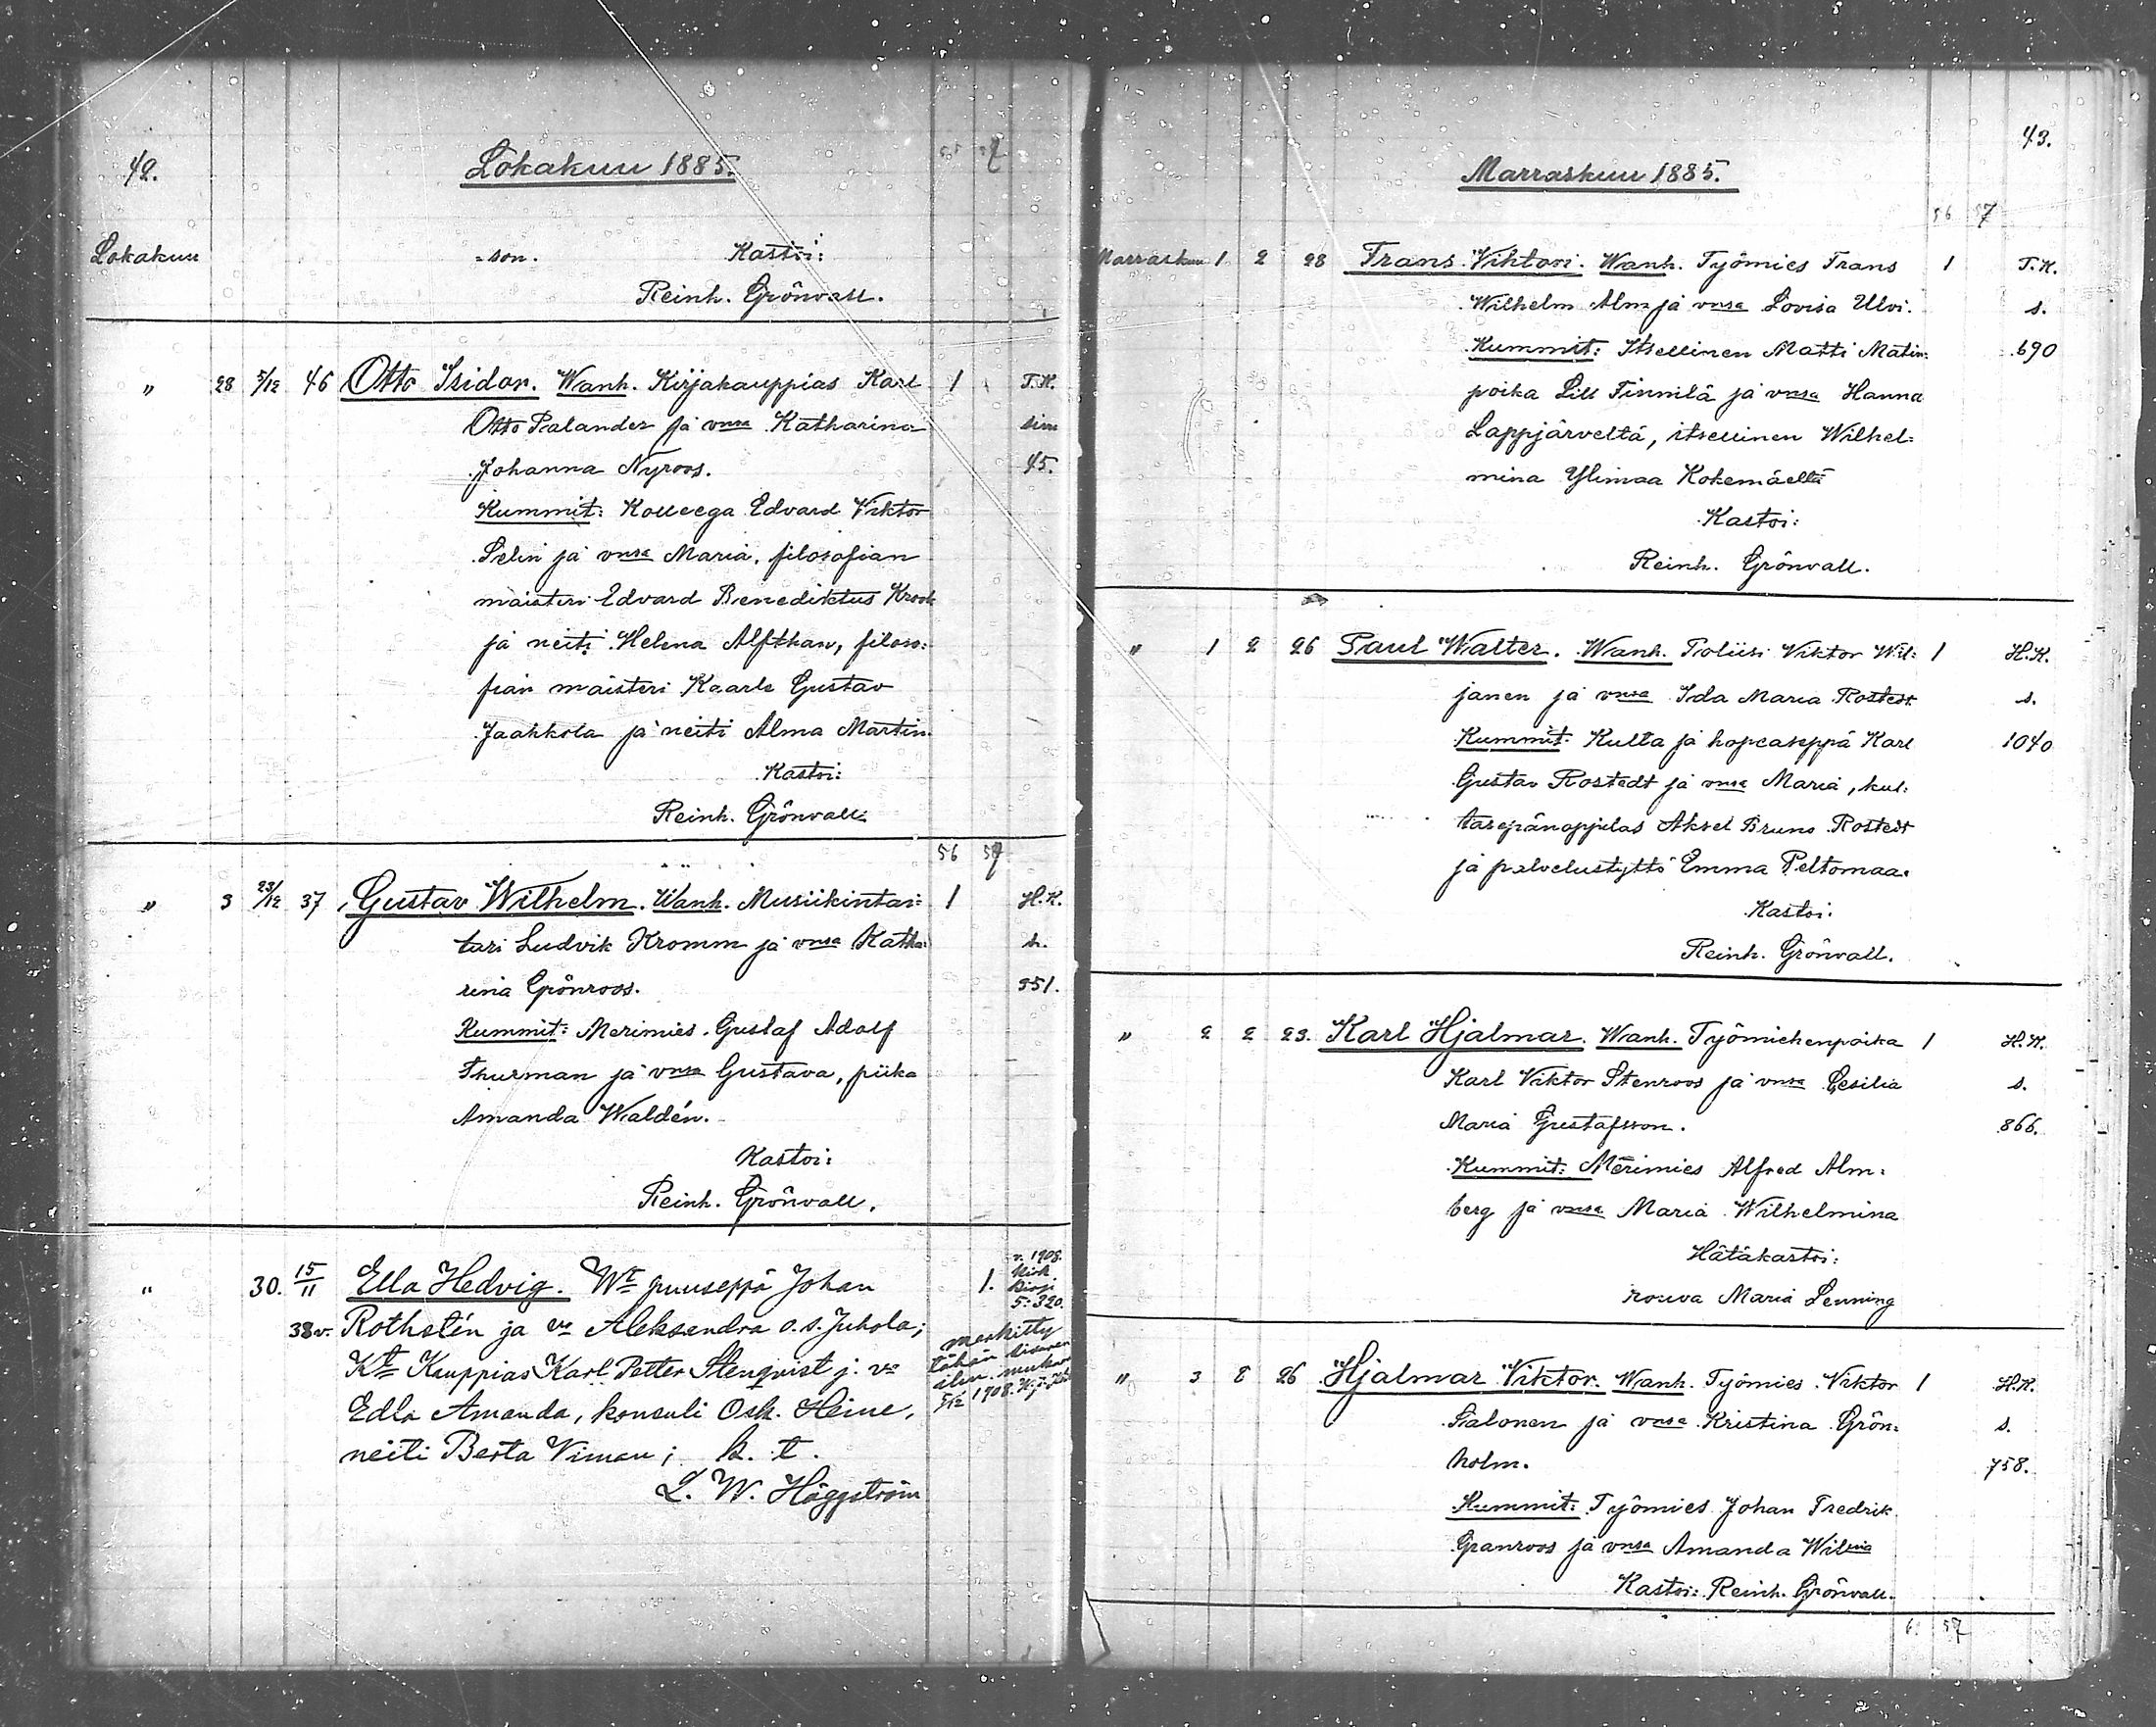 42.
Lokakuu 1885.
Lokakuu - son. Kastoi:
Reinh. Grönvall.
" 28 5/12 46 Otto Isidor. Wanh. Kirjakauppias Karl 1 T.K.
Otto Palander ja vmsa Katharina siv.
Johanna Nyroos. 45.
Kummit: Kolleega Edvard Viktor
Selin ja vmsa Maria, filosofian
maisteri Edvard Benediktus Krook
ja neiti Helena Alfthan, filoso:
fian maisteri Kaarle Gustav
Jaahkola ja neiti Alma Martin.
Kastoi:
Reinh. Grönvall.
56 57
" 3 23/12 37 Gustav Wilhelm. Wanh. Musiikintai: 1 H.K.
turi Ludvik Kromm ja vmsa Katha: s.
rina Grönroos. 951.
Kummit: Merimies Gustaf Adolf
Thurman ja vmsa Gustava, piika
Amanda Waldén.
Kastoi:
Reinh. Grönvall.
" 30. 15/11 Ella Hedvig. Wt puuseppä Johan 1. v. 1908. kirk kirja 5:320.
38 v. Rothstén ja vo Aleksandra o.s. Juhola;
Kt Kauppias Karl Petter Stenqvist j. vo
Edla Amanda, konsuli Osk. Heine,
neiti Berta Viman; k. t.
L. W. Häggström
merkitty
tähän
ilm. mukaan
5/12 1908.
43.
Marraskuu 1885.
56 57
Marraskuu 1 2 28 Frans Viktori. Wanh. Työmies Frans 1 T.K.
Wilhelm Alm ja vmsa Lovisa Ulvi. s.
Kummit: Itsellinen Matti Matin: 690
poika Lill Finnilä ja vmsa Hanna
Lappjärveltä, itsellinen Wilhel:
mina Ylimaa Kokemäeltä
Kastoi:
Reinh. Grönvall.
" 1 2 26 Paul Walter. Wanh. Poliisi Viktor Wil: 1 H.K.
janen ja vmsa Ida Maria Rostedt s.
Kummit: Kulta ja hopeaseppä Karl 1040
Gustav Rostedt ja vmsa Maria, kul:
tasepänoppilas Aksel Bruno Rostedt
ja palvelustyttö Emma Peltomaa.
Kastoi:
Reinh. Grönvall.
" 2 2 23. Karl Hjalmar. Wanh. Työmiehenpoika 1 H.K.
Karl Viktor Stenroos ja vmsa Cesilia s.
Maria Gustafsson. 866.
Kummit: Merimies Alfred Alm:
berg ja vmsa Maria Wilhelmina
Hätäkastoi:
rouva Maria Lenning
" 3 8 26 Hjalmar Viktor. Wanh. Työmies Viktor 1 H.K.
Salonen ja vmsa Kristina Grön: s.
holm. 758.
Kummit: Työmies Johan Fredrik
Granroos ja vmsa Amanda Wilmia
Kastoi: Reinh. Grönvall.
57